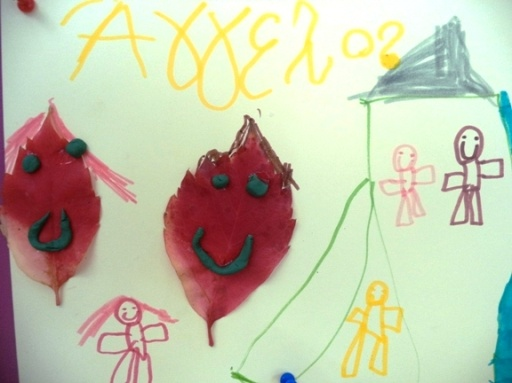 Άγγελος